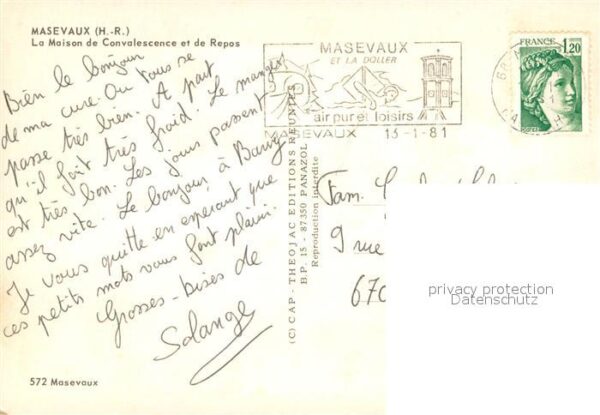 MASEVAUX (H.-R.)
La Maison de Convalescence et de Repos
Bien le bonjour
de ma cure. Ou tous se
passe très bien. A part
qu'il fait très froid. Le manger
est très bon. Les jours passent
assez vite. Le bonjour à
Je vous quitte en esperant que
ces petits mots vous font plaisir.
Grosses-bises de
Solange
572 Masevaux
(C) CAP - THEOJAC EDITIONS REUNIES
B.P. 15 - 87350 PANAZOL
Reproduction interdite
MASEVAUX
ET LA DOLLER
air pur et loisirs
MASEVAUX 13-1-81
FRANCE
1,20
Fam.
9 rue
670
privacy protection
Datenschutz